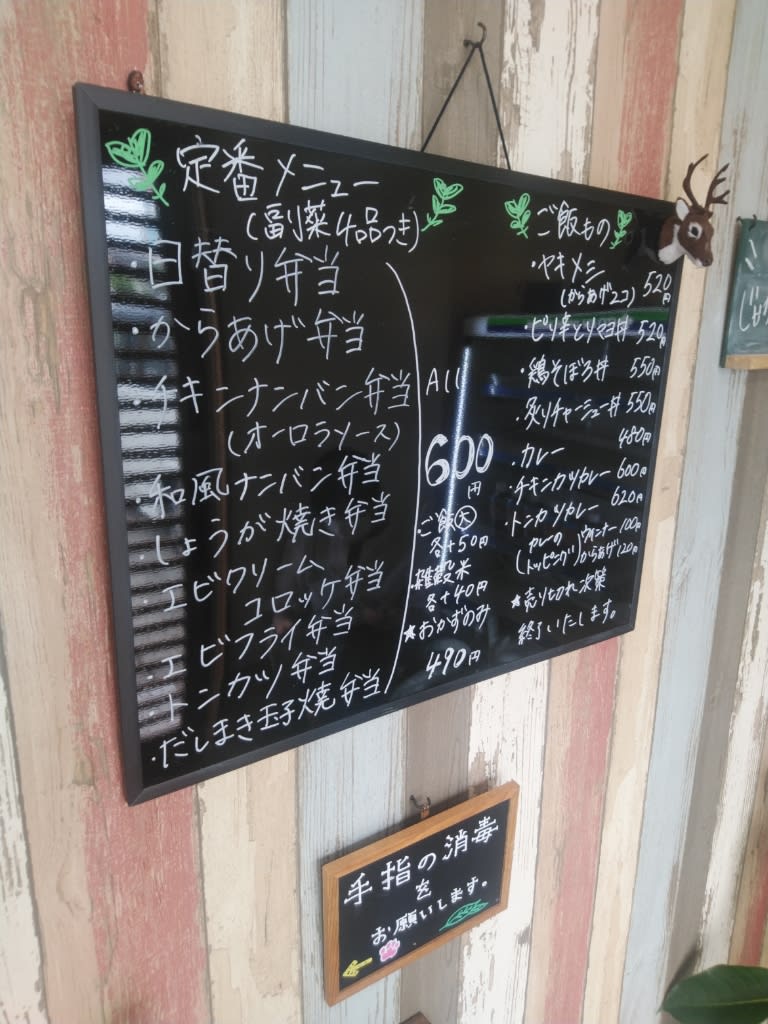 定番メニュー
(副菜4品つき)
・日替り弁当
・からあげ弁当
・チキンナンバン弁当
(オーロラソース)
・和風ナンバン弁当
・しょうが焼き弁当
・エビクリーム
コロッケ弁当
・エビフライ弁当
・トンカツ弁当
・だしまき玉子焼弁当
All
600
円
ご飯大
各+50円
雑穀米
各+40円
★おかずのみ
490円
ご飯もの
・ヤキメシ
(からあげ2コ) 520円
・ピリ辛とりマヨ丼 520円
・鶏そぼろ丼 550円
・炙りチャーシュー丼 550円
・カレー 480円
・チキンカツカレー 600円
・トンカツカレー 620円
(カレーの
トッピング) ウインナー100円
からあげ120円
★売り切れ次第
終了いたします。
手指の消毒
を
お願いします。